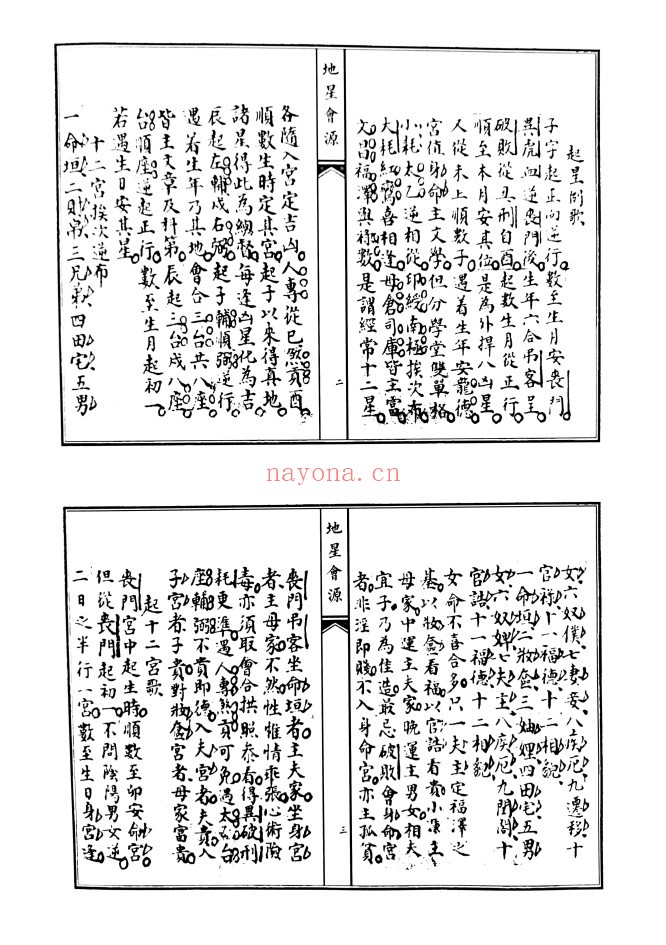 起星例歌
子字起正向逆行數至生月安喪門
異虎血逆喪門後生年六合弔客呈
破敗從丑刑自酉起數生月從正行
順至本月安其位是為外捍八凶星
人從未上順數子遇着生年安龍德
宮值身命主文學但分學堂雙單格
小耗太乙逆相從印綬南極挨次布
大耗紅鸞喜相逢母倉司庫皆主富
文昌福澤與祿數是謂經常十二星
地星會源
二
各隨入宮定吉凶人專從巳煞貢酉
順數生時定其宮起子以來得真地
諸星得此為總督每逢凶星化為吉
辰起左輔戌右弼起子輔順弼逆行
遇着生年乃其地會合三台共八座
皆主文章及科第辰起三台戌八座
台順座逆起正行數至生月起初一
若遇生日安其星
十二宮挨次逆布
一命垣二財帛三兄弟四田宅五男
女六奴僕七妻妾八疾厄九遷移十
官祿十一福德十二相貌
一命垣二妝奩三妯娌四田宅五男
女六奴婢七夫主八疾厄九閨閣十
官誥十一福德十二相貌
女命不喜合多只一夫主定福澤之
基以妝奩看福以官誥看貴小限主
母家中運主夫家晚運主男女相夫
宜子乃為佳造最忌破敗會身命宮
者非淫即賤不入身命宮亦主孤貧
地星會源
三
喪門弔客坐命垣者主夫家坐身宮
者主母家不然性惟情乖張心術險
毒亦須取會合拱照參看得異破刑
耗更準遇人專煞貢可免遇太乙台
座輔弼不貴即德入夫宮者夫貴入
子宮者子貴對妝奩宮者母家富貴
起十二宮歌
喪門宮中起生時順數至卯安命宮
但從喪門起初一不問陰陽男女逆
二日之半行一宮數至生日身宮逢
nayona.cn